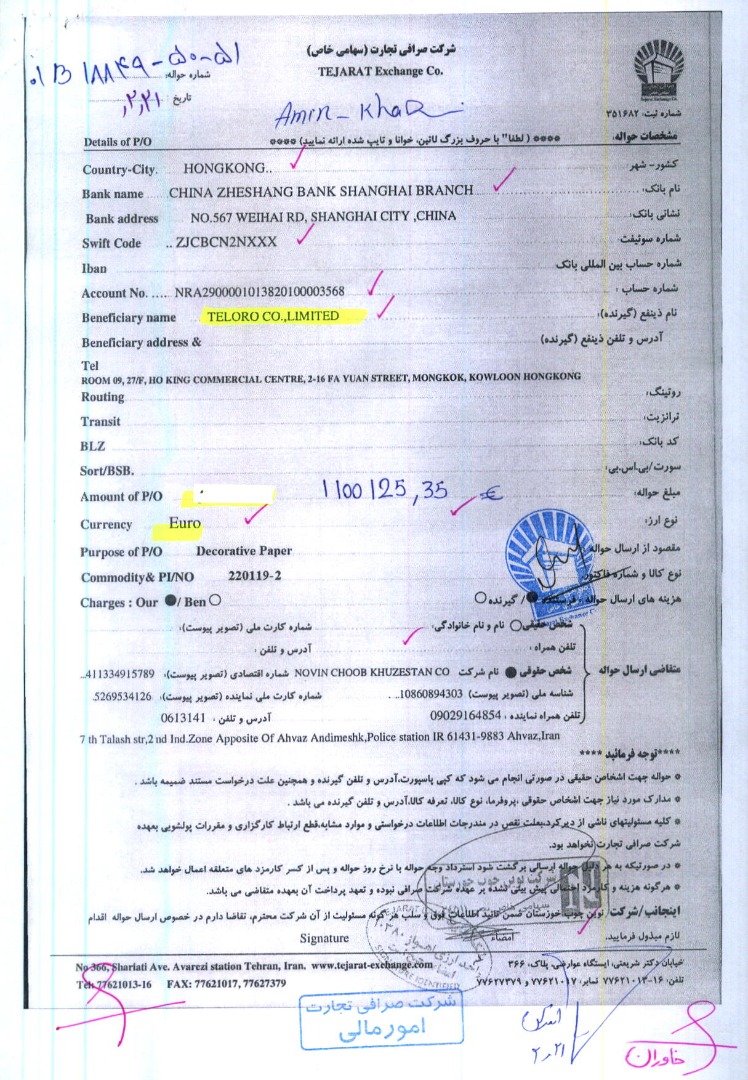 شرکت صرافی تجارت (سهامی خاص)
TEJARAT Exchange Co.
.1B 18849-50-51
شماره حواله:
تاریخ :
Amin-Khak
شماره ثبت: ۳۵۱۶۸۲
مشخصات حواله:
**** ( لطفا" با حروف بزرگ لاتین، خوانا و تایپ شده ارائه نمایید) ****
Details of P/O
Country-City. HONGKONG.. کشور- شهر
Bank name CHINA ZHESHANG BANK SHANGHAI BRANCH نام بانک:
Bank address NO.567 WEIHAI RD, SHANGHAI CITY ,CHINA نشانی بانک:
Swift Code .. ZJCBCN2NXXX شماره سوئیفت
Iban شماره حساب بین المللی بانک
Account No. .... NRA2900001013820100003568 شماره حساب :
Beneficiary name TELORO CO.,LIMITED نام ذینفع (گیرنده):
Beneficiary address & آدرس و تلفن ذینفع (گیرنده)
Tel
ROOM 09, 27/F, HO KING COMMERCIAL CENTRE, 2-16 FA YUAN STREET, MONGKOK, KOWLOON HONGKONG
Routing روتینگ:
Transit ترانزیت:
BLZ کد بانک:
Sort/BSB. سورت/بی.اس.بی:
Amount of P/O 1100125,35 € مبلغ حواله:
Currency Euro نوع ارز:
Purpose of P/O Decorative Paper مقصود از ارسال حواله
Commodity& PI/NO 220119-2 نوع کالا و شماره فاکتور:
Charges : Our / Ben هزینه های ارسال حواله : فرستنده / گیرنده
شخص حقیقی نام و نام خانوادگی: شماره کارت ملی (تصویر پیوست):
تلفن همراه: آدرس و تلفن :
متقاضی ارسال حواله
شخص حقوقی نام شرکت NOVIN CHOOB KHUZESTAN CO شماره اقتصادی (تصویر پیوست): 411334915789..
شناسه ملی (تصویر پیوست) 10860894303.... شماره کارت ملی نماینده (تصویر پیوست): 5269534126.
تلفن همراه نماینده : 09029164854 آدرس و تلفن : 0613141
7 th Talash str,2 nd Ind.Zone Apposite Of Ahvaz Andimeshk,Police station IR 61431-9883 Ahvaz,Iran
****توجه فرمائید ****
* حواله جهت اشخاص حقیقی در صورتی انجام می شود که کپی پاسپورت،آدرس و تلفن گیرنده و همچنین علت درخواست مستند ضمیمه باشد .
* مدارک مورد نیاز جهت اشخاص حقوقی ،پروفرما، نوع کالا، تعرفه کالا،آدرس و تلفن گیرنده می باشد .
* کلیه مسئولیتهای ناشی از دیرکرد،بعلت نقص در مندرجات اطلاعات درخواستی و موارد مشابه،قطع ارتباط کارگزاری و مقررات پولشویی بعهده
شرکت صرافی تجارت نخواهد بود.
* در صورتیکه به هر دلیل حواله ارسالی برگشت شود استرداد وجه حواله با نرخ روز حواله و پس از کسر کارمزد های متعلقه اعمال خواهد شد.
* هرگونه هزینه و کارمزد احتمالی پیش بینی نشده بر عهده شرکت صرافی نبوده و تعهد پرداخت آن بعهده متقاضی می باشد.
اینجانب/شرکت نوین چوب خوزستان ضمن تائید اطلاعات فوق و سلب هر گونه مسئولیت از آن شرکت محترم، تقاضا دارم در خصوص ارسال حواله اقدام
لازم مبذول فرمایید.
امضاء
Signature
No 366, Shariati Ave. Avarezi station Tehran, Iran. www.tejarat-exchange.com
خیابان دکتر شریعتی، ایستگاه عوارضی، پلاک، ۳۶۶
Tel: 77621013-16 FAX: 77621017, 77627379
تلفن: ۱۶-۷۷۶۲۱۰۱۳ نمابر: ۷۷۶۲۱۰۱۷ و ۷۷۶۲۷۳۷۹
شرکت صرافی تجارت
امور مالی
خاوران